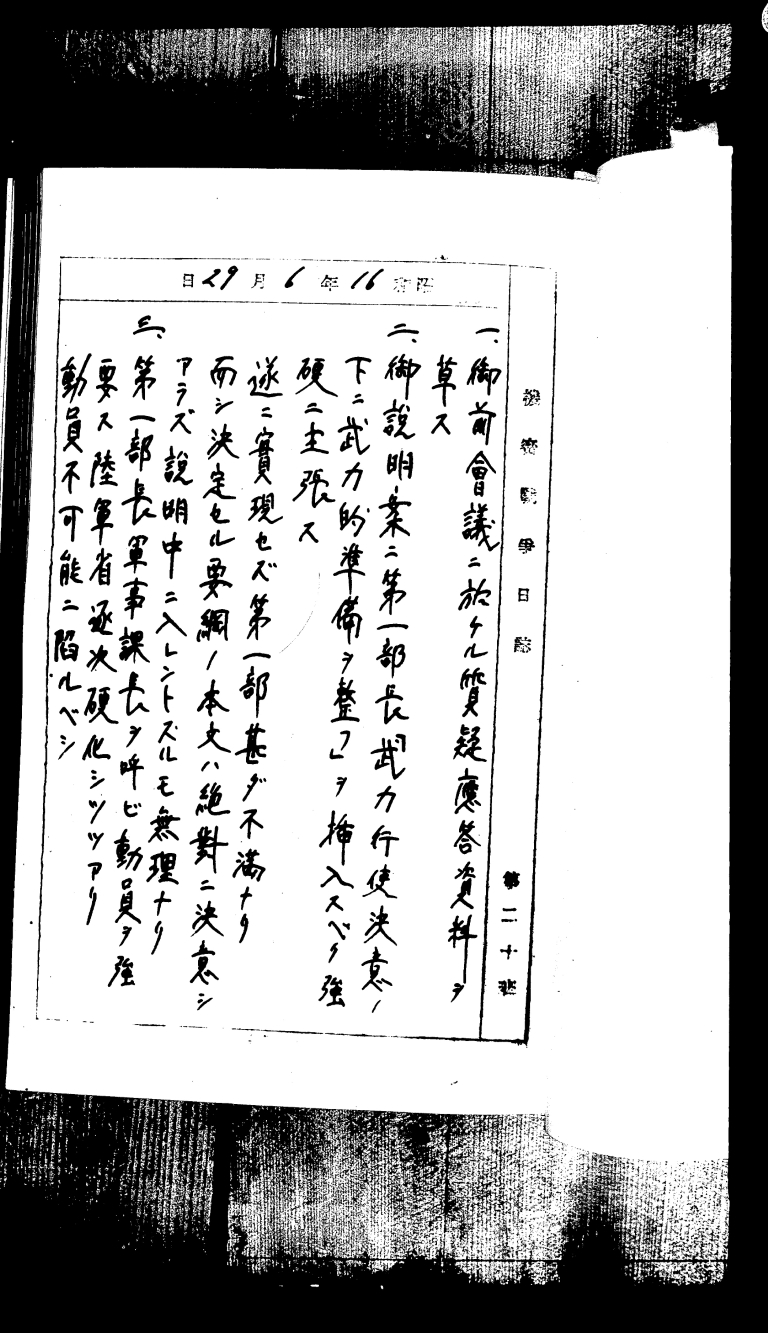 機密戰爭日誌
第二十班
昭和16年6月29日
一、御前會議ニ於ケル質疑應答資料ヲ
草ス
二、御說明案ニ第一部長「武力行使決意ノ
下ニ武力的準備ヲ整フ」ヲ挿入スベク強
硬ニ主張ス
遂ニ實現セズ第一部甚ダ不滿ナリ
而シ決定セル要綱ノ本文ハ絕對ニ決意シ
アラズ說明中ニ入レントスルモ無理ナリ
三、第一部長軍事課長ヲ呼ビ動員ヲ強
要ス陸軍省逐次硬化シツツアリ
動員不可能ニ陷ルベシ